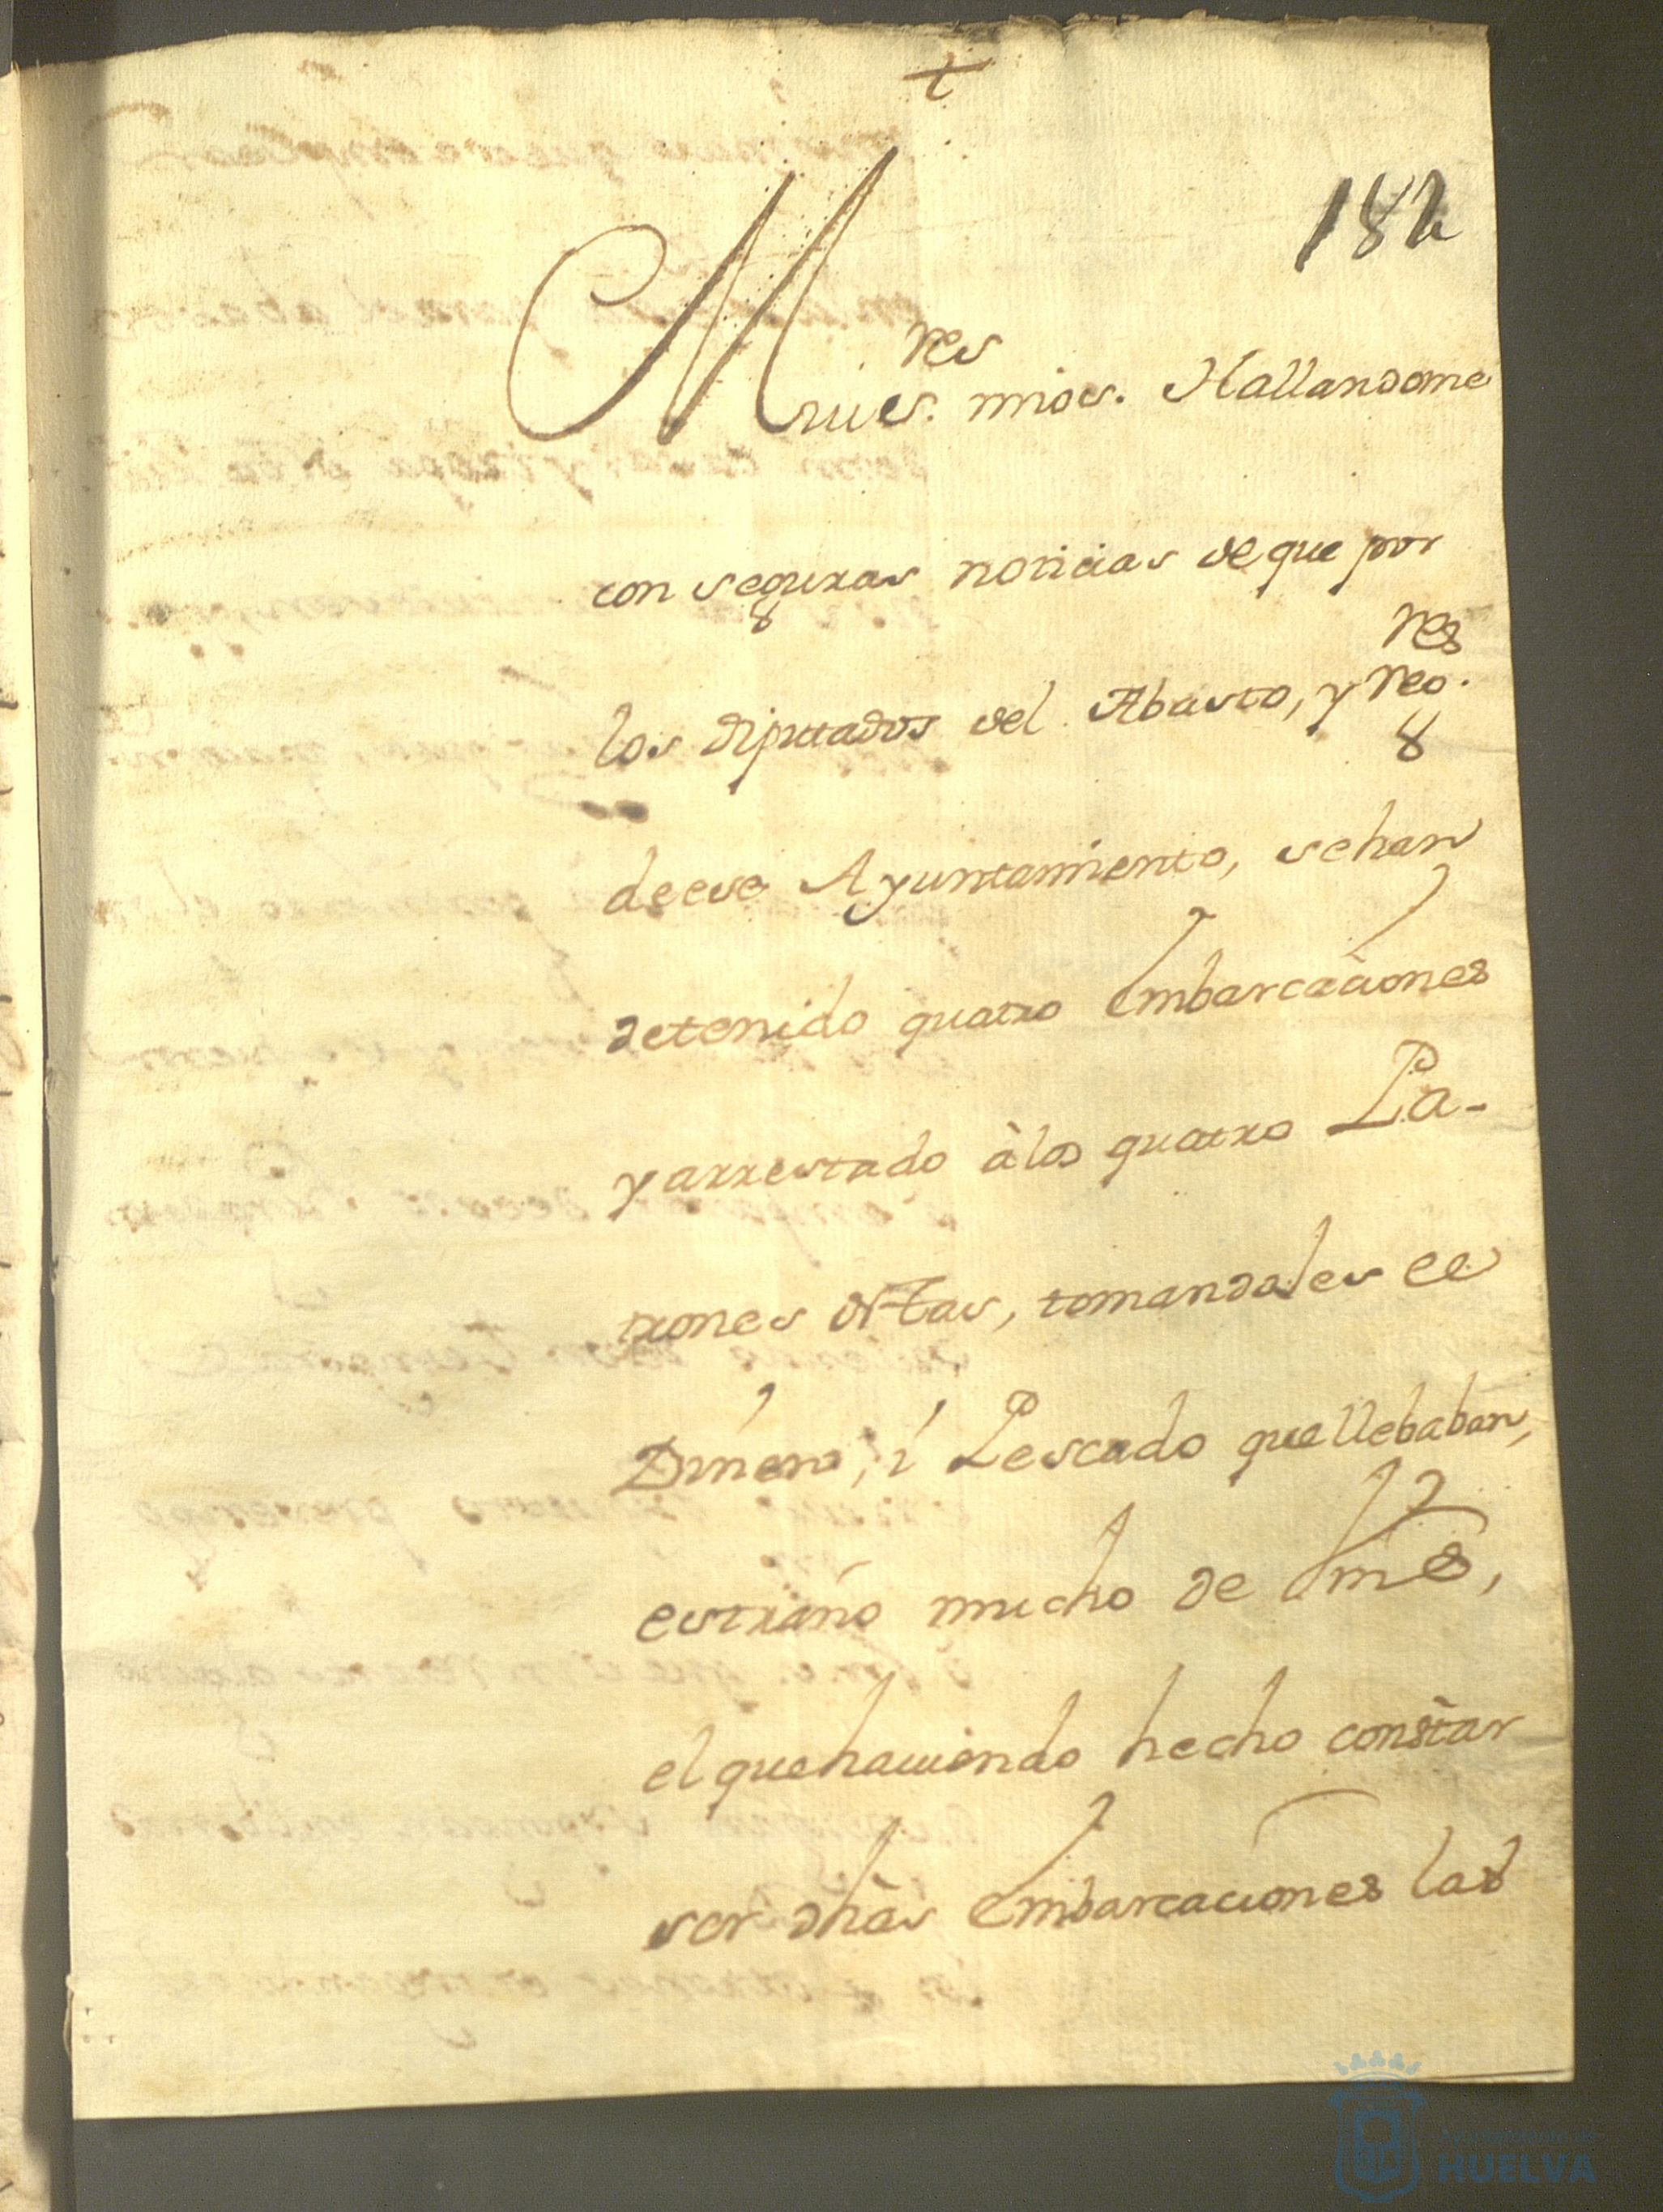 +
182
Mui s.res mios. Hallandome
con seguras noticias de que por
los Diputados del Abasto, y
de ese Ayuntamiento, se han
detenido quatro Embarcaciones
y arrestado à los quatro Pa-
trones de ttas, tomandoles el
Dinero, i Pescado que llebaban,
estraño mucho de Vms,
el que haviendo hecho constar
ser dhãs Embarcaciones las
Ayuntamiento de
HUELVA